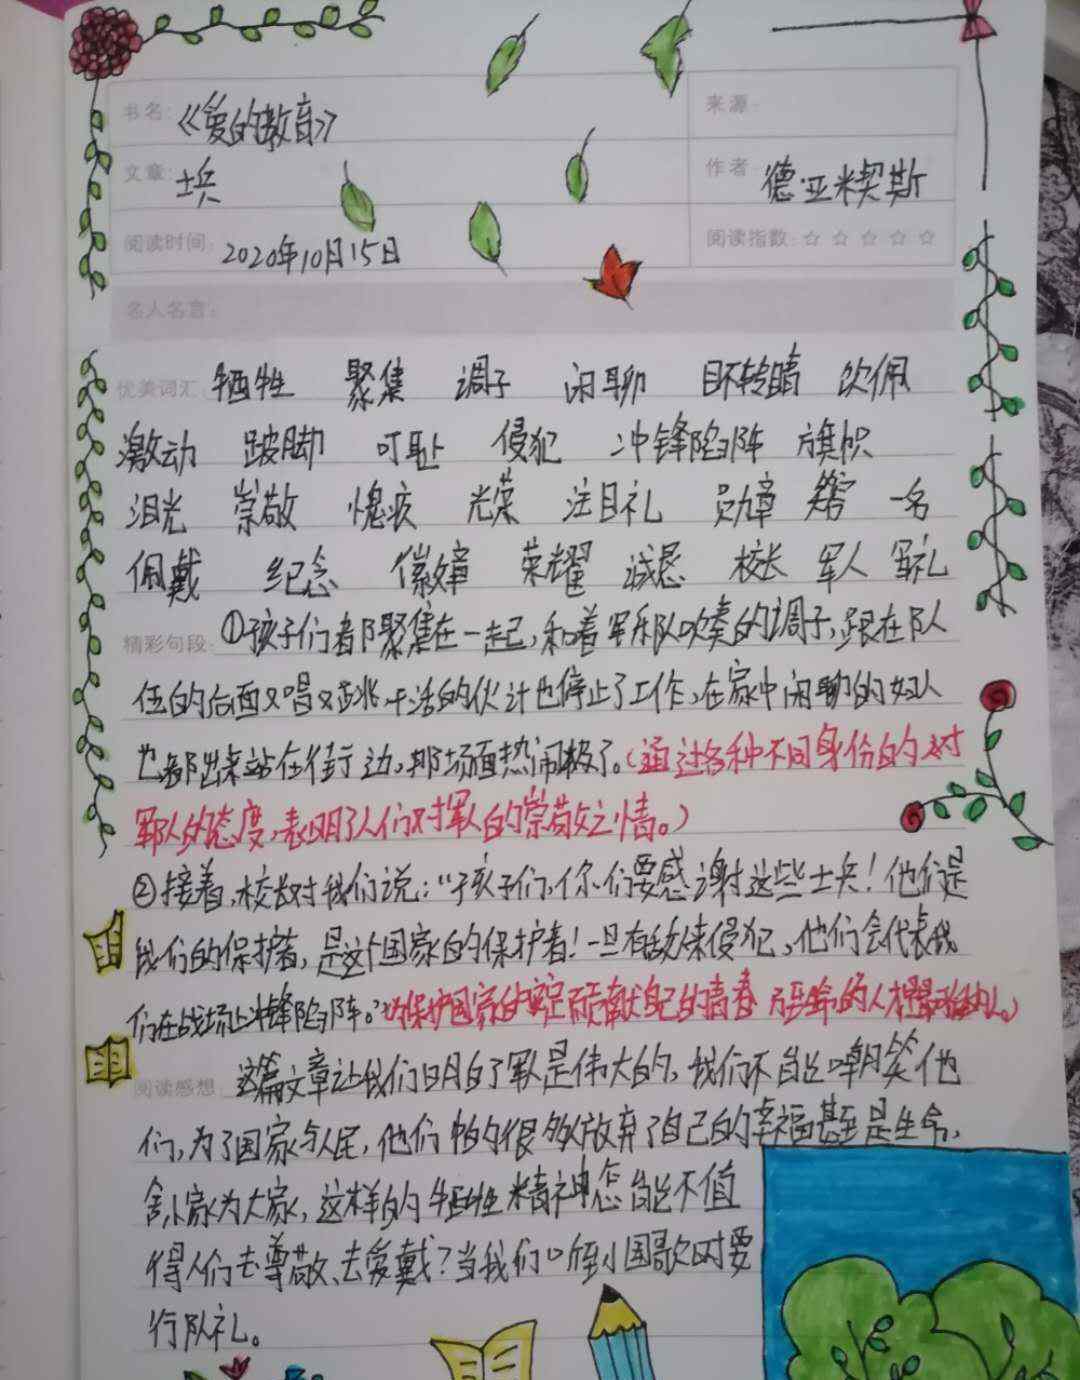 书名：《爱的教育》
来源：
文章：士兵
作者 德·亚米契斯
阅读时间：2020年10月15日
阅读指数：☆ ☆ ☆ ☆ ☆
名人名言：
优美词汇 牺牲 聚集 调子 闲聊 目不转睛 钦佩
激动 跛脚 可耻 侵犯 冲锋陷阵 旗帜
泪光 崇敬 愧疚 光荣 注目礼 勋章 一名
佩戴 纪念 徽章 荣耀 诚恳 校长 军人 军礼
精彩句段：①孩子们都聚集在一起，和着军乐队吹奏的调子，跟在队
伍的后面又唱又跳，干活的伙计也停止了工作，在家中闲聊的妇人
也都出来站在街边，那场面热闹极了。（通过各种不同身份的人对
军队的态度，表明了人们对军人的崇敬之情。）
②接着，校长对我们说：“孩子们，你们要感谢这些士兵！他们是
我们的保护者，是这个国家的保护者！一旦有敌人来侵犯，他们会代表我
们在战场上冲锋陷阵。”（为保护国家的安定而贡献自己的青春 乃至生命的人才是最可敬的人。）
阅读感想：这篇文章让我们明白了军人是伟大的，我们不能嘲笑他
们，为了国家与人民，他们中的很多人放弃了自己的幸福甚至是生命，
舍小家为大家，这样的牺牲精神怎能不值
得人们去尊敬、去爱戴？当我们听到国歌时要
行队礼。